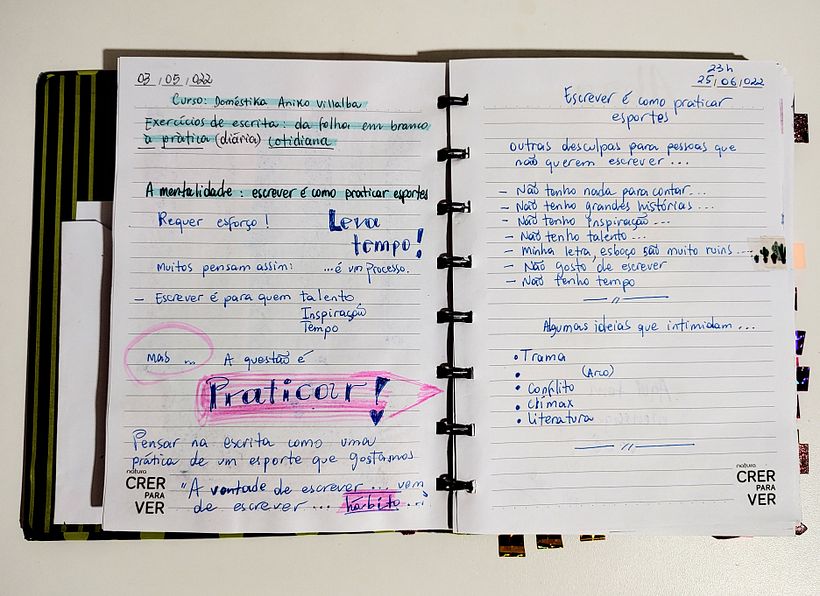 03/05/022
Curso: Doméstika Aniko Villalba
Exercícios de escrita: da folha em branco
à pràtica (diária) cotidiana
A mentalidade: escrever é como praticar esportes
Requer esforço!
Leva
tempo!
Muitos pensam assim: ...é um processo.
- Escrever é para quem talento
Inspiração
Tempo
mas ... A questão é
Praticar!
Pensar na escrita como uma
prática de um esporte que gostamos
"A vontade de escrever ... vem
de escrever ... hábito ..."
natura
CRER
PARA
VER
23h
25/06/022
Escrever é como praticar
esportes
outras desculpas para pessoas que
não querem escrever ...
- Não tenho nada para contar...
- Não tenho grandes histórias...
- Não tenho inspiração ...
- Não tenho talento ...
- Minha letra, esboço são muito ruins ...
- Não gosto de escrever
- Não tenho tempo
Algumas ideias que intimidam ...
• Trama
• (Arco)
• Conflito
• Clímax
• Literatura
natura
CRER
PARA
VER